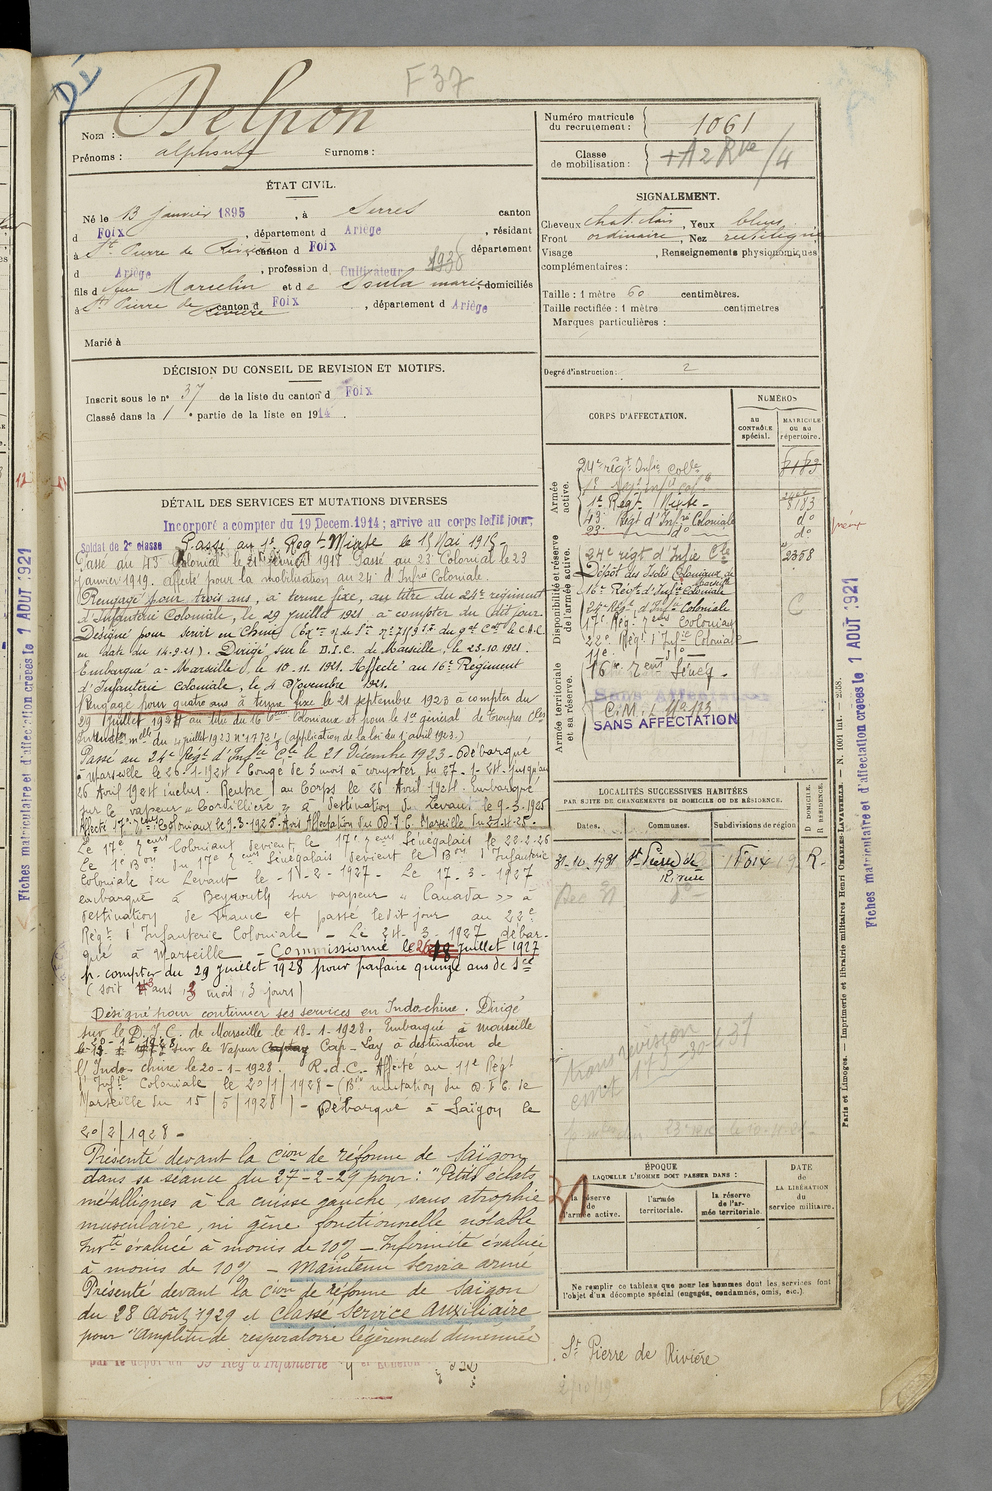 F37
DÉ
Nom : Delpon
Prénoms : alphonse Surnoms :
Numéro matricule du recrutement : 1061
Classe de mobilisation : + A 2 Rve /4
ÉTAT CIVIL.
Né le 13 janvier 1895, à Serres canton
d Foix, département d Ariège, résidant
à St Pierre de Rivière canton d Foix département
d Ariège, profession d Cultivateur 1938
fils d feu Marcelin et de Soula marie, domiciliés
à St Pierre de Rivière canton d Foix, département d Ariège
Marié à
SIGNALEMENT.
Cheveux chat. clair, Yeux bleus
Front ordinaire, Nez rectiligne
Visage , Renseignements physionomiques
complémentaires :
Taille : 1 mètre 60 centimètres.
Taille rectifiée : 1 mètre centimètres
Marques particulières :
Degré d'instruction : 2
DÉCISION DU CONSEIL DE REVISION ET MOTIFS.
Inscrit sous le n° 37 de la liste du canton d Foix
Classé dans la 1e partie de la liste en 1914.
DÉTAIL DES SERVICES ET MUTATIONS DIVERSES
Incorporé a compter du 19 Decem. 1914 ; arrivé au corps ledit jour,
Soldat de 2e classe Passé au 1er Regt Mixte le 15 Mai 1915-
Passé au 43 Colonial le 21 février 1918 Passé au 23 Colonial le 23
janvier 1919. affecté pour la mobilisation au 24e d'Infrie Coloniale.
Rengagé pour trois ans, à terme fixe, au titre du 24e régiment
d'Infanterie Coloniale, le 29 juillet 1921 à compter du dit jour.
Désigné pour servir en Chine
en date du 14-9-21). Dirigé sur le D.I.C. de Marseille, le 23.10.1921.
Embarqué à Marseille, le 10.11.1921. Affecté au 16e Régiment
d'Infanterie Coloniale, le 4 Novembre 1921.
Rengagé pour quatre ans à terme fixe le 21 septembre 1923 à compter du
29 juillet 1924 au titre du 16e Coloniaux et pour le 1er général de Troupes Cles
du 4 juillet 1923 N° 1773/ (application de la loi du 1er avril 1923.)
Passé au 24e Régt d'Infie Cle le 21 Décembre 1923 - Débarqué
à Marseille le 26-1-1924. Congé de 3 mois à compter du 27-1-24 jusqu'au
26 Avril 1924 inclus. Rentré au Corps le 26 Avril 1924. Embarqué
sur le vapeur « Cordillière » à destination du Levant le 9-3-1925
Affecté 17e Zeurs Coloniaux le 9.3.1925. Avis Affectation du D.I.C. Marseille du
Le 17e Zeurs Coloniaux devient le 17e Zeurs Sénégalais le 20-2-26
Le 1er Bon du 17e Zeurs Sénégalais devient le Bon d'Infanterie
Coloniale du Levant le -1-2-1927- Le 17.3-1927
embarqué à Beyrouth sur vapeur « Canada » à
destination de France et passé ledit jour au 22e
Régt d'Infanterie Coloniale - Le 24-3-1927 débar-
qué à Marseille - Commissionné le juillet 1927
p. compter du 29 juillet 1928 pour parfaire quinze ans de Sce
(soit ans, 3 mois, 3 jours)
Désigné pour continuer ses services en Indochine. Dirigé
sur le D.I.C. de Marseille le 18-1-1928. Embarqué à Marseille
le 20-1-1928 sur le Vapeur Cap-Lay à destination de
l'Indo-chine le 20-1-1928. R.d.C. Affecté au 11e Régt
d'Infie Coloniale le 20/1/1928 - (Bin mutation du D.I.C de
Marseille du 15/5/1928) - Débarqué à Saïgon le
20/2/1928-
Présenté devant la Cion de réforme de Saïgon
dans sa séance du 27-2-29 pour : "Petits éclats
métalliques à la cuisse gauche, sans atrophie
musculaire, ni gêne fonctionnelle notable
Invté évaluée à moins de 10% - Infirmité évaluée
à moins de 10% - Maintenu Service armé
Présenté devant la Cion de réforme de Saïgon
du 28 Août 1929 et classé Service Auxiliaire
pour "Amplitude respiratoire légèrement diminuée
par le dépôt du 59 Rég d'Infanterie
CORPS D'AFFECTATION.
NUMÉROS
AU CONTRÔLE spécial.
MATRICULE OU AU répertoire.
Armée active.
24e régt Infie Colle 8183
1er Régt Mixte - 8183
43e Régt d'Infrie Coloniale do
23 - do - do
Disponibilité et réserve de l'armée active.
24e régt d'Infie Cle 2358
Dépôt des Isolés Coloniaux de Marseille
16e Regt d'Infie Coloniale
24e Régt d'Infie Coloniale C
17e Rég. Zeurs Coloniaux
22e Régt d'Infie Coloniale
11e do
16e Zeurs Sénég.
Armée territoriale et sa réserve.
Sans Affectation
SANS AFFECTATION
LOCALITÉS SUCCESSIVES HABITÉES
PAR SUITE DE CHANGEMENTS DE DOMICILE OU DE RÉSIDENCE.
Dates. Communes. Subdivisions de région D DOMICILE. R RÉSIDENCE.
31-10-1931 St Pierre de Rivière Foix R.
ÉPOQUE
A LAQUELLE L'HOMME DOIT PASSER DANS :
la réserve de l'armée active.
l'armée territoriale.
la réserve de l'armée territoriale.
DATE de LA LIBÉRATION du service militaire.
Ne remplir ce tableau que pour les hommes dont les services font
l'objet d'un décompte spécial (engagés, condamnés, omis, etc.).
St Pierre de Rivière
Fiches matriculaire et d'affectation créées le 1 AOUT 1921
Paris et Limoges. — Imprimerie et librairie militaires Henri CHARLES-LAVAUZELLE. — N. 1001 int. — 2558.
Fiches matriculaire et d'affectation créées le 1 AOUT 1921